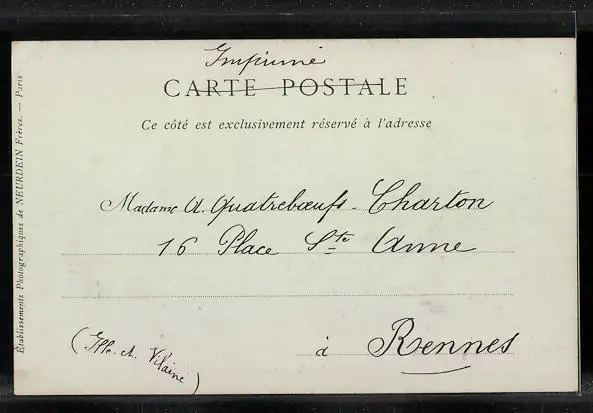 Imprimé
CARTE POSTALE
Ce côté est exclusivement réservé à l'adresse
Madame A. Quatrebœufs-Charton
16 Place Ste Anne
à Rennes
(Ille-et-Vilaine)
Établissements Photographiques de NEURDEIN Frères. — Paris